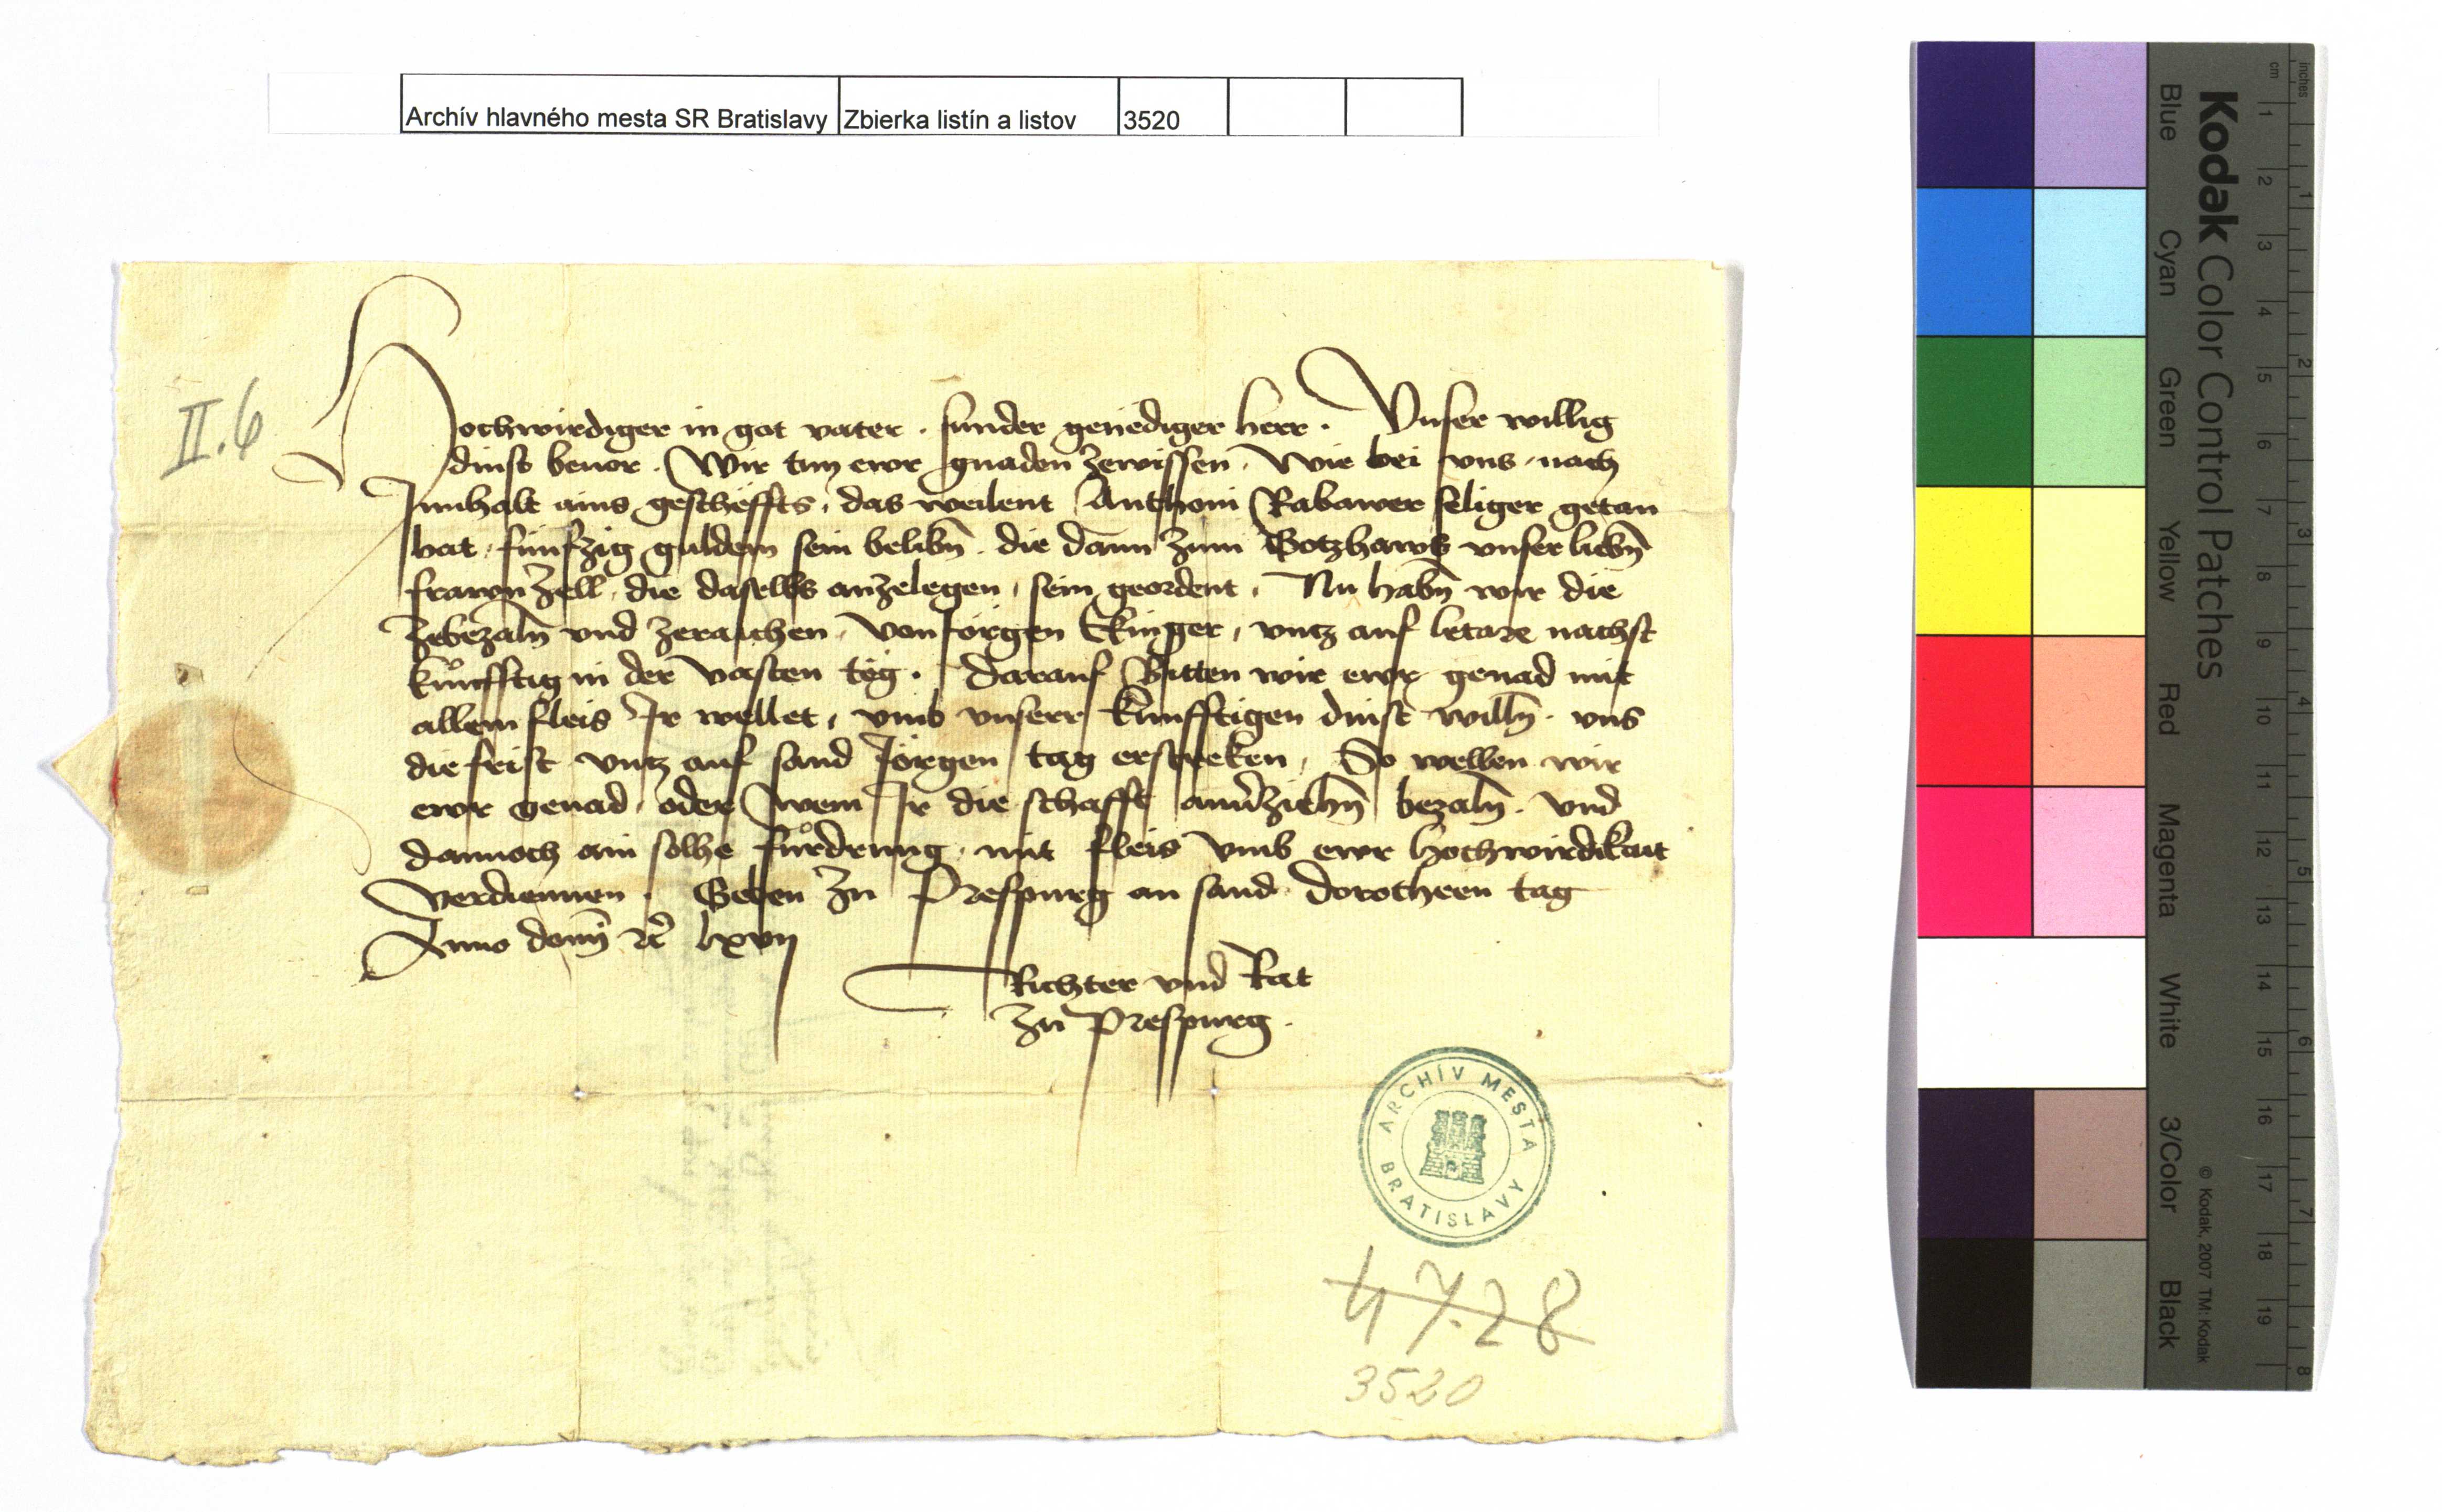 Archív hlavného mesta SR Bratislavy Zbierka listín a listov 3520
II.6
Hochwirdiger in got vater . sunder genediger herr . Vnser willig
dinst beuor . Wir tun ewr gnaden zewissen . Wie bei vns nach
Innhalt ains gescheffts, das weilent Anthoni Rabawer seliger getan
hat, fünfzig guldein sein belibn̄ . die dann zum Gotzhaws vnser liebn̄
frawn Zell, die daselbs anzelegen, sein geordent . Nu habn̄ wir die
zebezaln̄ vnd zeraichen, von Jörgen Ekinger, vntz auf letare nachst
kůnfftig in der vasten täg . darauf Bitten wir ewr genad mit
allem fleis Ir wellet, vmb vnserr künfftigen dinst willn̄ . vns
die frist vntz auf sand Jörgen tag erstreken, So wellen wir
ewr genad, oder wem Ir die schafft bezaln̄ . vnd
dannoch ain solhe fůrdrung, mit fleis vmb ewr hochwirdikait
verdiennen . Geben zu Prespurg an sand Dorotheen tag
Anno domī ꝛc̄ lxvij
Richter vnd Rat
zu Prespurg .
ARCHÍV MESTA BRATISLAVY
4728
3520
Kodak Color Control Patches
Blue Cyan Green Yellow Red Magenta White 3/Color Black
© Kodak, 2007 TM: Kodak
inches 1 2 3 4 5 6 7 8
cm 1 2 3 4 5 6 7 8 9 10 11 12 13 14 15 16 17 18 19